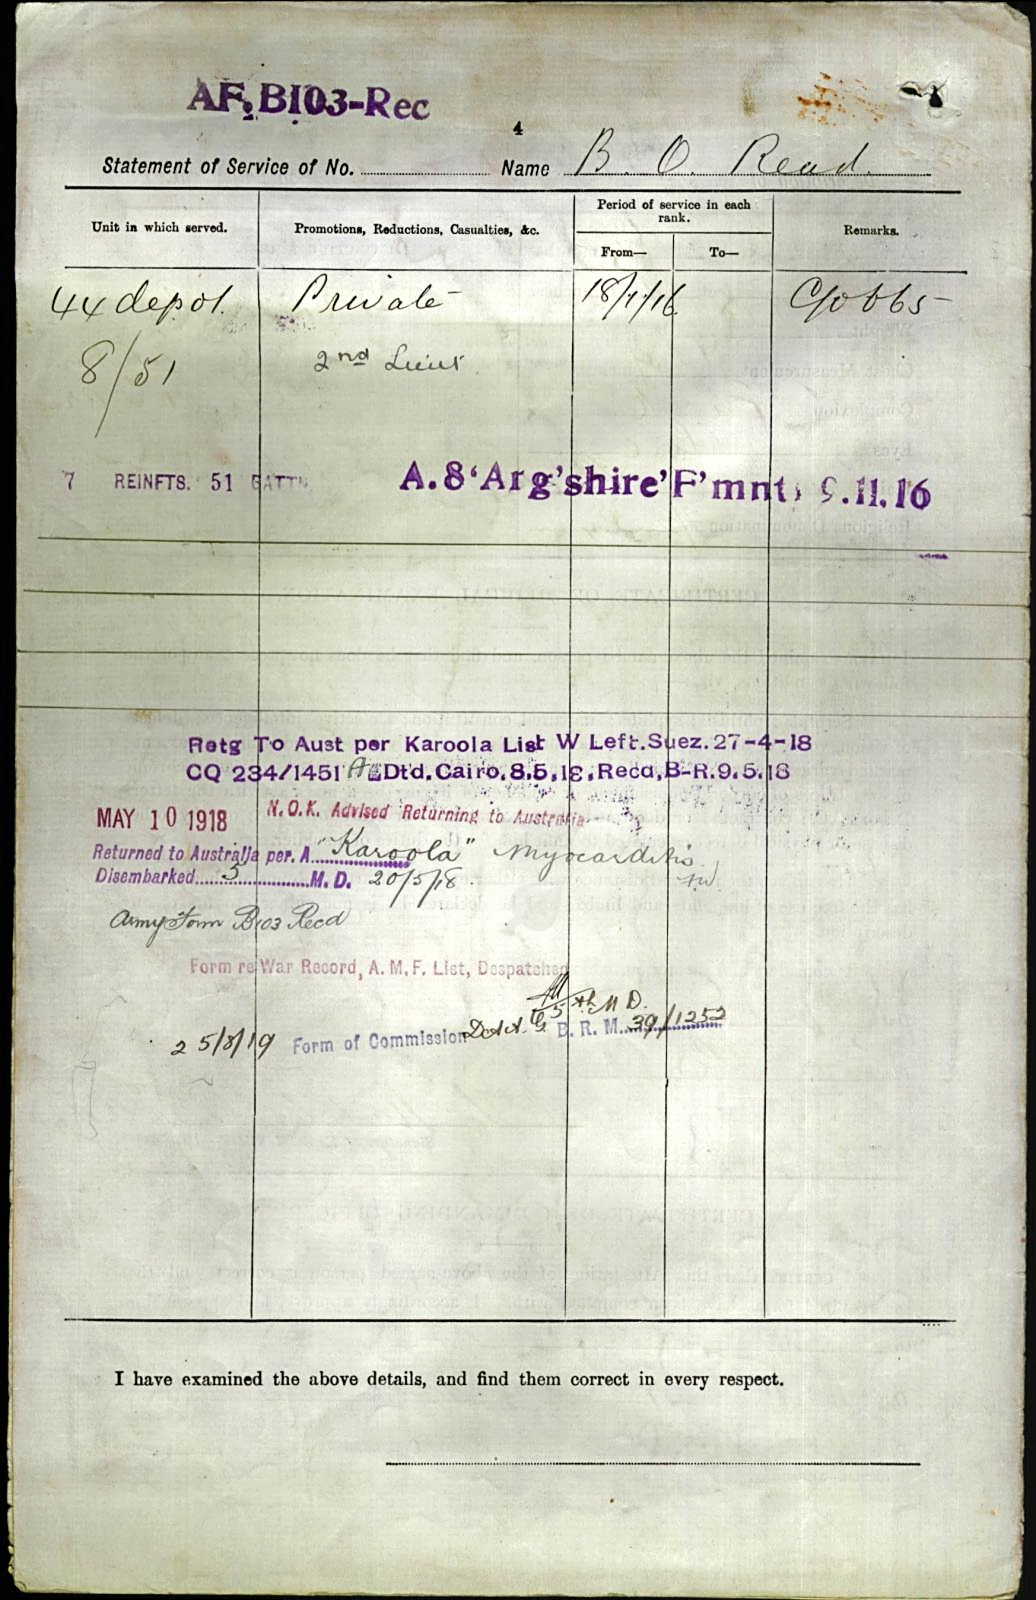 AF. B103-Rec
4
Statement of Service of No. Name B. O. Read.
Unit in which served. Promotions, Reductions, Casualties, &c. Period of service in each rank. Remarks.
From— To—
44 depot. Private 18/7/16
8/51 2nd Lieut
7 REINFTS. 51 BATTN A.8 'Arg'shire' F'mnt, 9.11.16
Retg To Aust per Karoola List W Left.Suez.27-4-18
CQ 234/1451 Dtd.Cairo.8.5.18.Recd,B-R.9.5.18
MAY 10 1918 N.O.K. Advised Returning to Australia
Returned to Australia per. A "Karoola" Myocarditis
Disembarked 5 M. D. 20/5/18.
Army Form B103 Recd
Form re War Record, A. M. F. List, Despatched
5th M D.
25/8/19 Form of Commission D.A.A.G B. R. M. 39/1252
I have examined the above details, and find them correct in every respect.